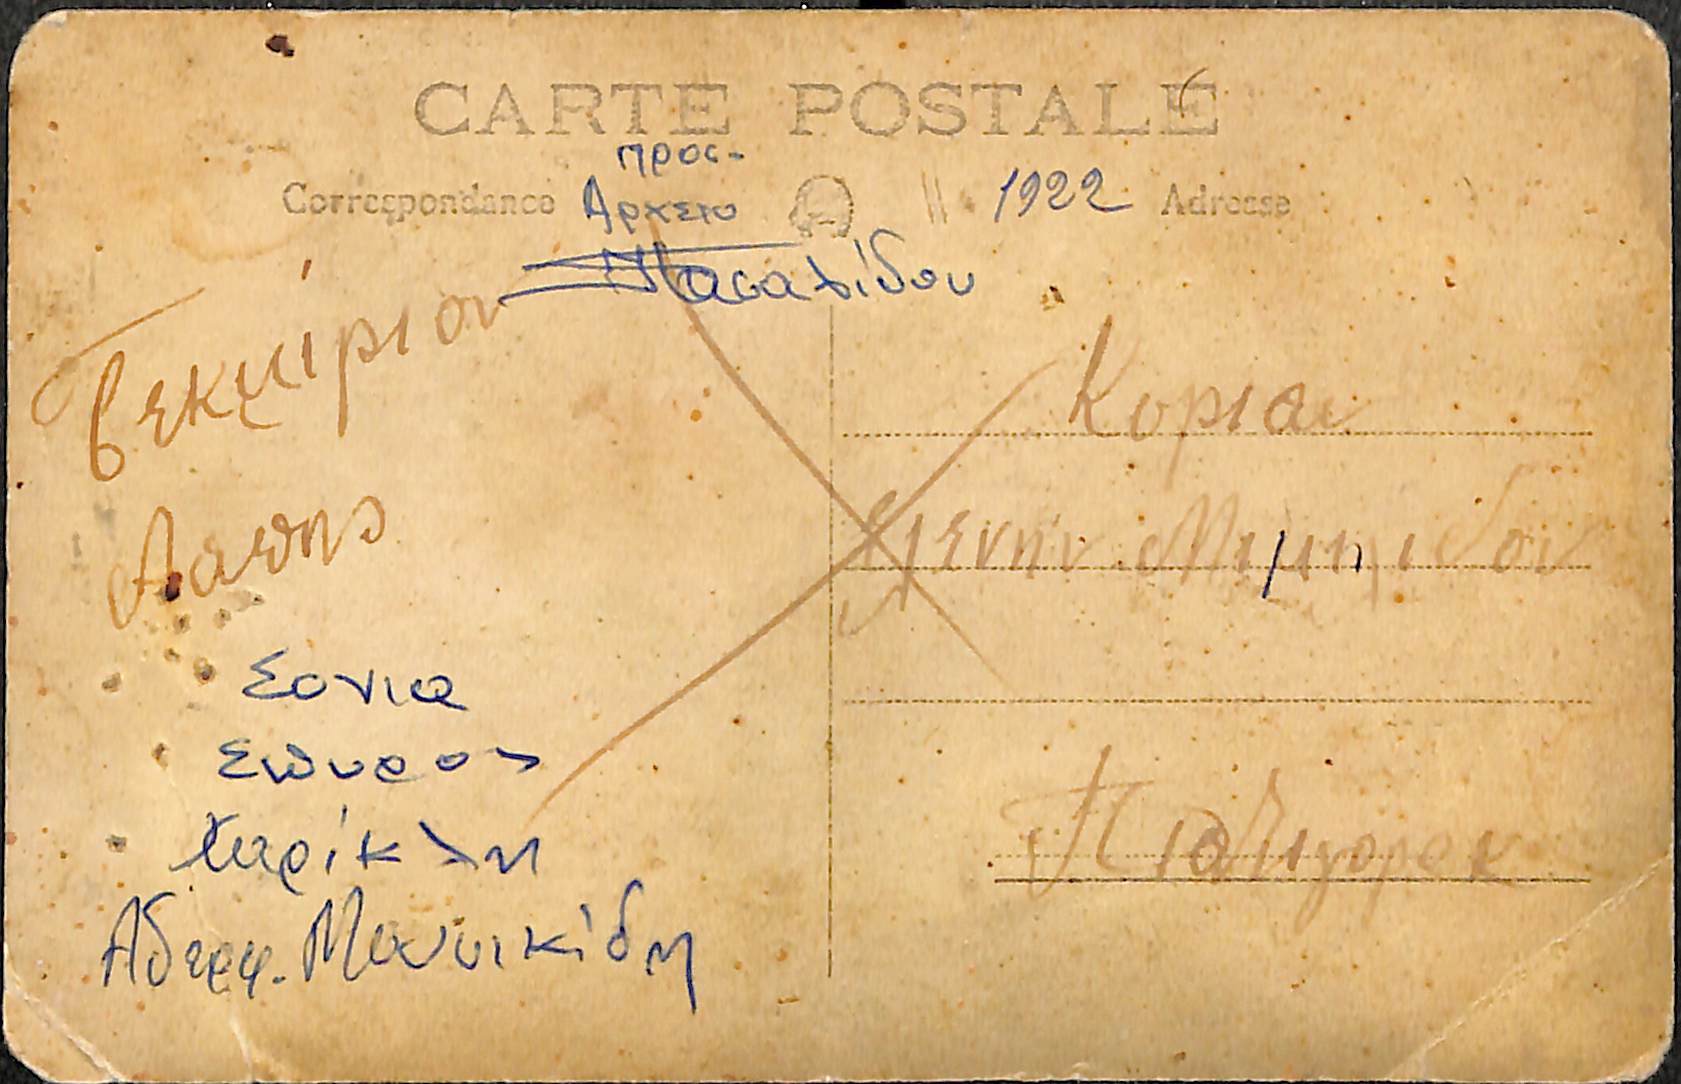 CARTE POSTALE
προς-
Correspondance Αρχειο 1922 Adresse
Πασαλίδου
Τεκμίριον
Ααπης
Σονια
Σπυρος
Χαρίκλη
Αδερφ. Μανικίδη
Κυριαν
Ελενην
Πιατιγορσκ